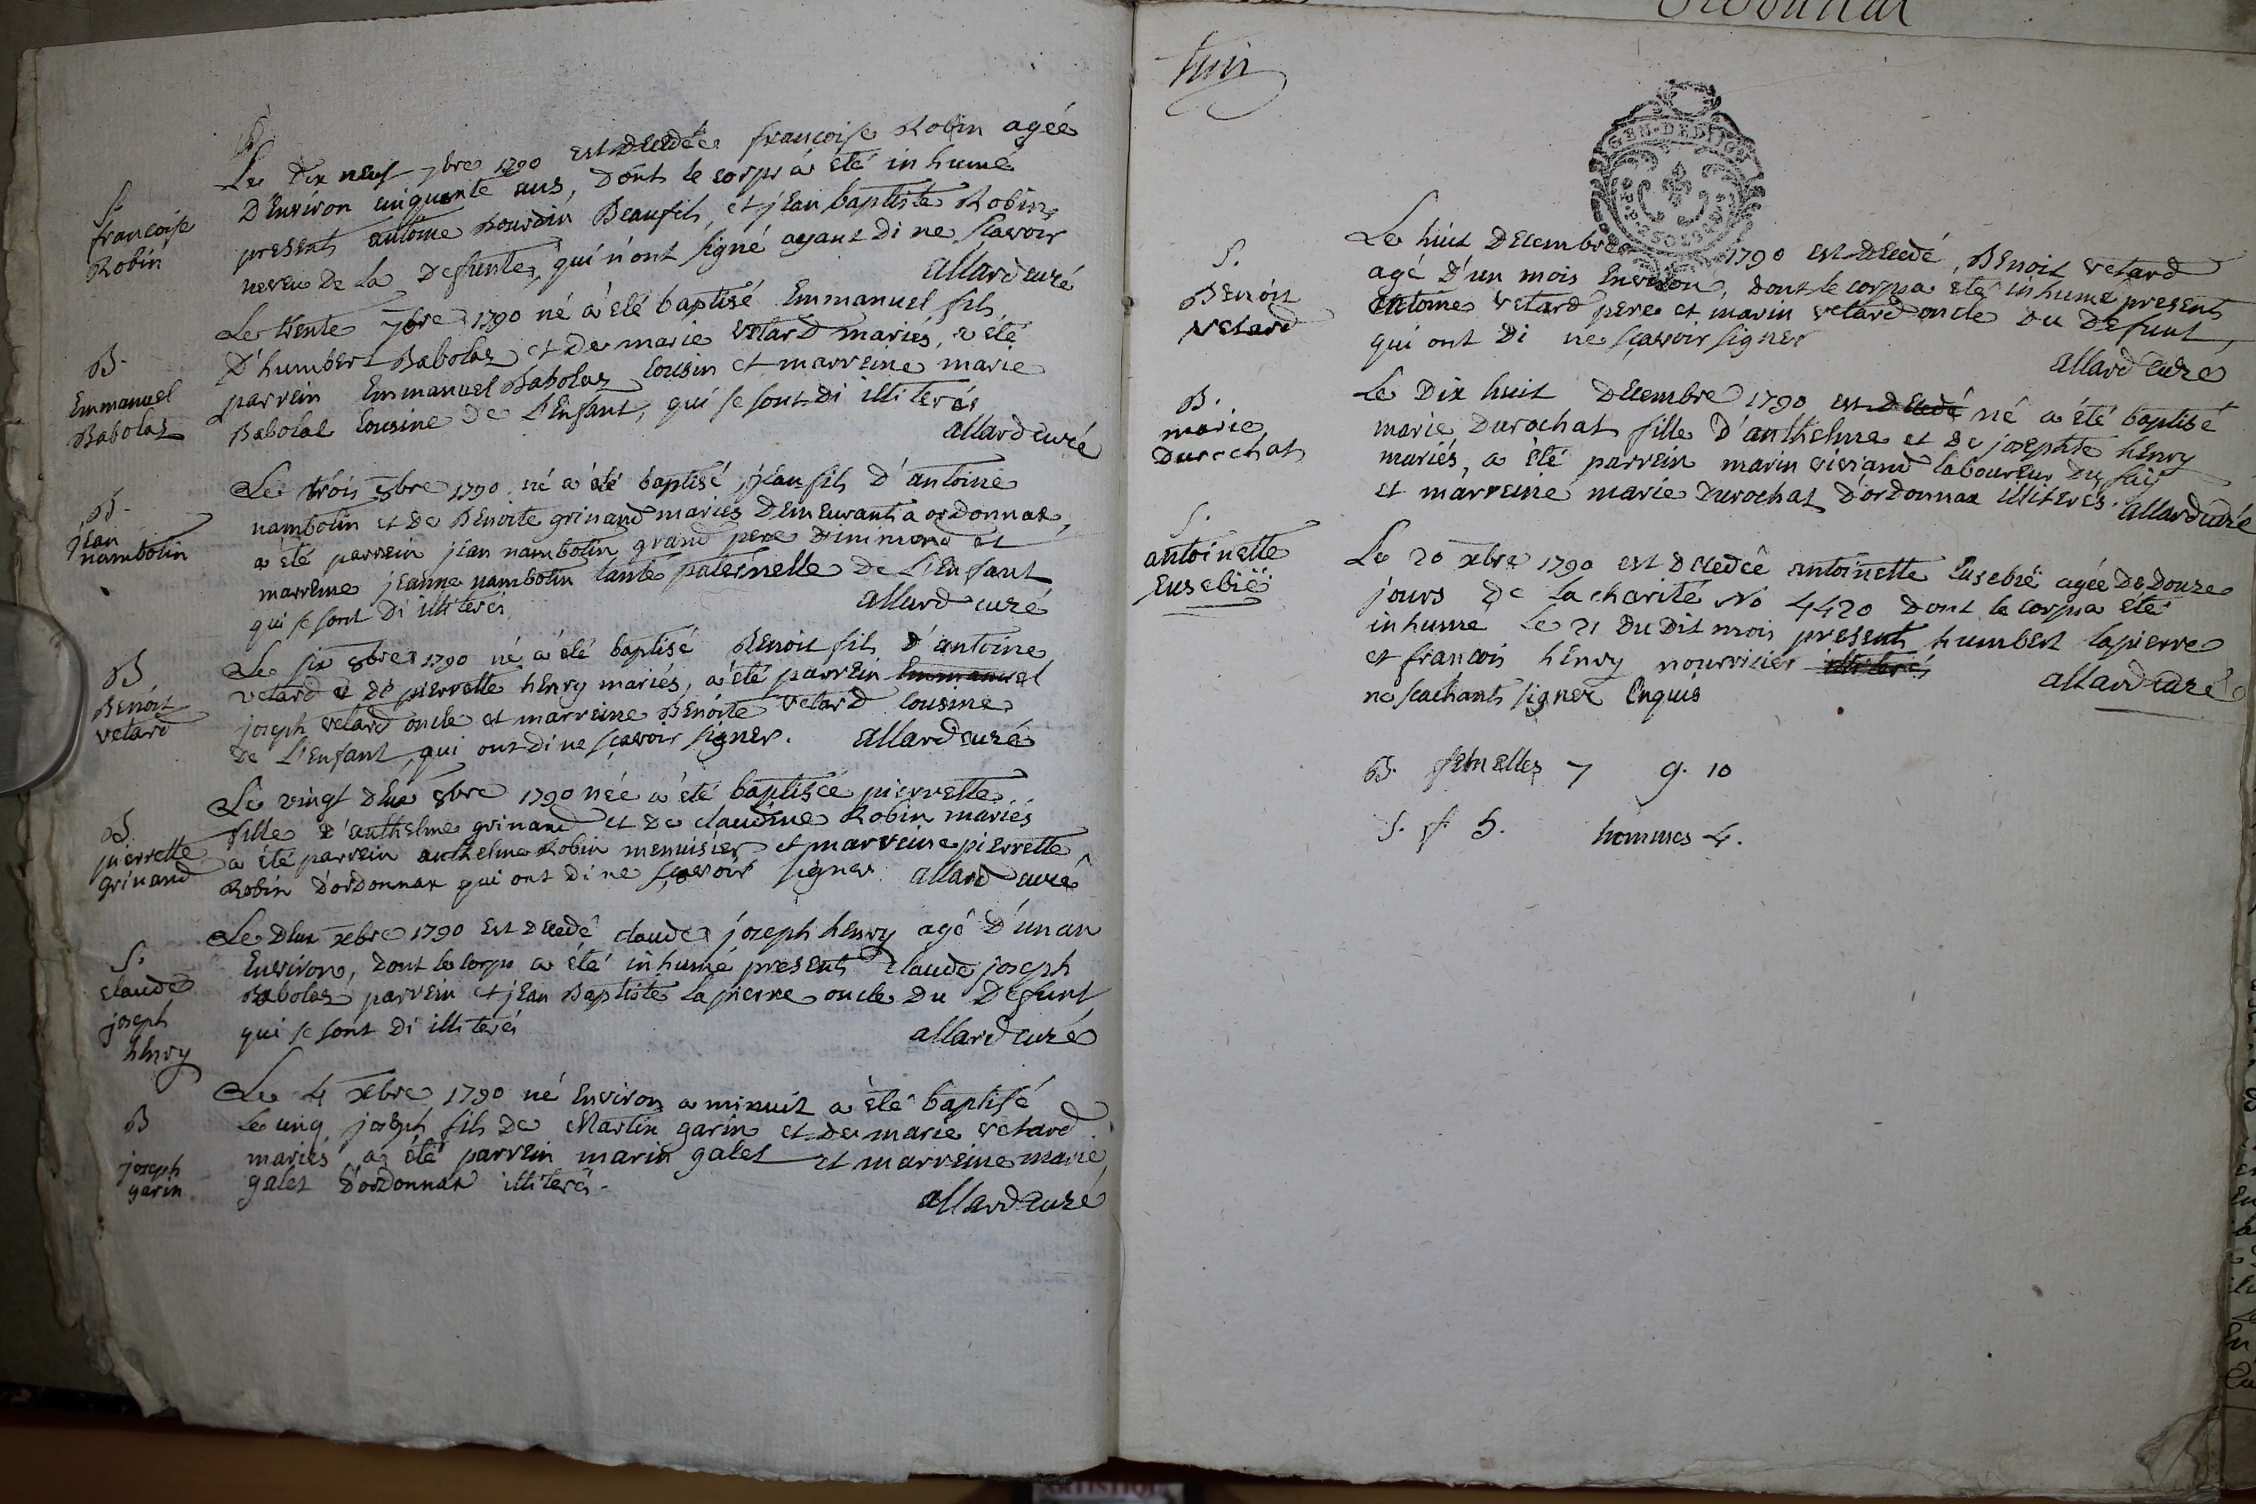 S.
francoise
Robin
Le dix neuf 7bre 1790 est decedée francoise Robin agée
d'Environ cinquante ans, dont le corps a été inhumé
presents antoine Bourdin Beaufils, et jean baptiste Robin
neveu de la defunte, qui n'ont signé ayant di ne scavoir
allard curé
B.
Emmanuel
Babolat
Le trente 7bre 1790 né a été baptisé Emmanuel fils
d'humbert Babolat et de marie vetard mariés, a été
parrein Emmanuel Babolat cousin et marreine marie
Babolat cousine de l'Enfant, qui se sont di illiterés
allard curé
B.
jean
nambotin
Le trois 8bre 1790 né a été baptisé jean fils d'antoine
nambotin et de Benoite grinand mariés demeurants a ordonnax,
a été parrein jean nambotin grand pere et
marreine jeanne nambotin tante paternelle de l'Enfant
qui se sont di illiterés
allard curé
B
Benoit
vetard
Le six 8bre 1790 né a été baptisé Benoit fils d'antoine
vetard et de pierrette henry mariés, a été parrein Emmanuel
joseph vetard oncle et marreine Benoite vetard cousine
de l'Enfant, qui ont di ne scavoir signer. allard curé
B.
pierrette
grinand
Le vingt deux 8bre 1790 née a été baptisée pierrette
fille d'anthelme grinand et de claudine Robin mariés
a été parrein anthelme Robin menuisier et marreine pierrette
Robin d'ordonnax qui ont di ne scavoir signer allard curé
S.
claude
joseph
henry
Le deux xbre 1790 est decedé claude joseph henry agé d'un an
Environ, dont le corps a été inhumé presents claude joseph
Babolat parrein et jean Baptiste Lapierre oncle du defunt
qui se sont di illiterés
allard curé
B
joseph
garin
Le 4 xbre 1790 né Environ a minuit a été baptisé
le cinq joseph fils de Martin garin et de marie vetard
mariés a été parrein marin galet et marreine marie
galet d'ordonnax illiterés.
allard curé
GEN. DE DIJON
S.
Benoit
vetard
Le huit decembre 1790 est decedé, Benoit vetard
agé d'un mois Environ, dont le corps a été inhumé presents
antoine vetard pere et marin vetard oncle du defunt,
qui ont di ne scavoir signer
allard curé
B.
marie
durochat
Le dix huit decembre 1790 est decedé né a été baptisé
marie durochat fille d'anthelme et de josephte henry
mariés, a été parrein marin viviand laboureur
et marreine marie durochat d'ordonnax illiterés. allard curé
S.
antoinette
Eusebië
Le 20 xbre 1790 est decedée antoinette Eusebië agée de douze
jours de la charité No 4420 dont le corps a été
inhume Le 21 du dit mois presents humbert lapierre
et francois henry nourricier illiterés
ne scachants signer Enquis
allard curé
B. femelles 7 g. 10
S. f. 5. hommes 4.